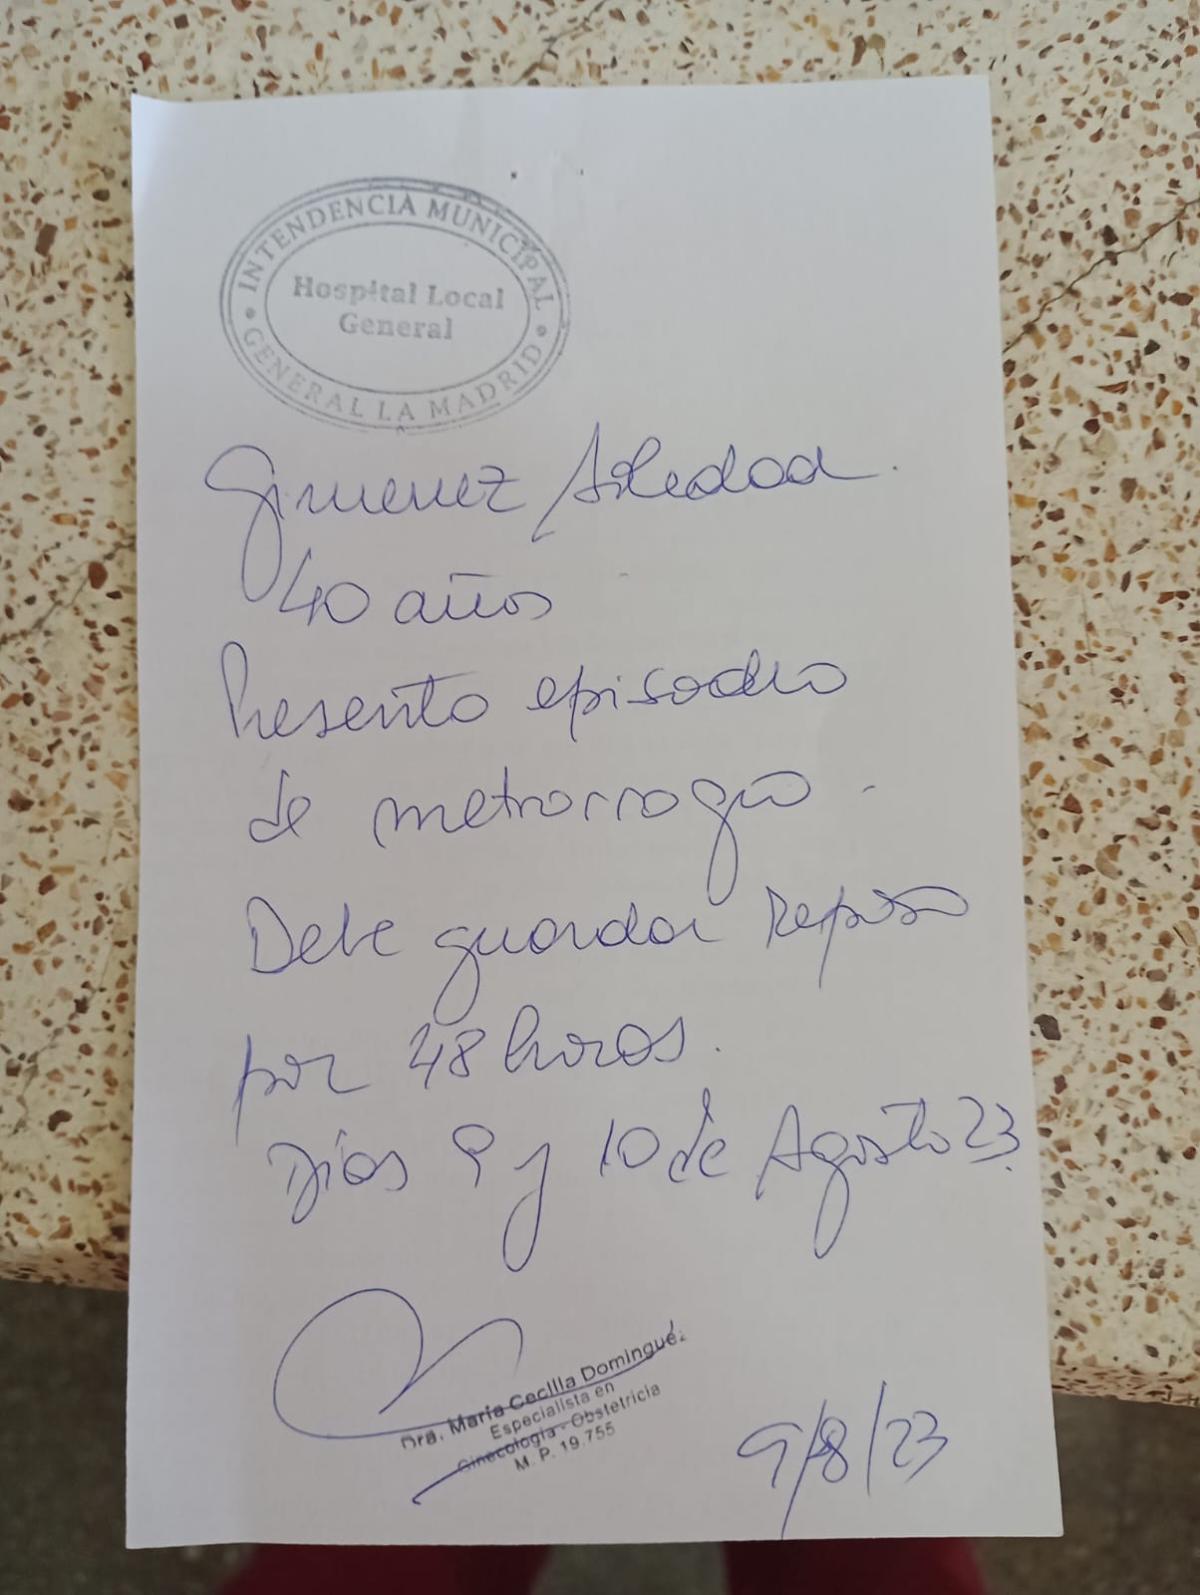 INTENDENCIA MUNICIPAL
Hospital Local
General
GENERAL LA MADRID
Gimenez Soledad.
40 años
Presento episodio
de metrorragia.
Debe guardar reposo
por 48 horas.
Días 9 y 10 de Agosto 23.
Dra. María Cecilia Dominguez
Especialista en
Ginecología - Obstetricia
M. P. 19.755
9/8/23